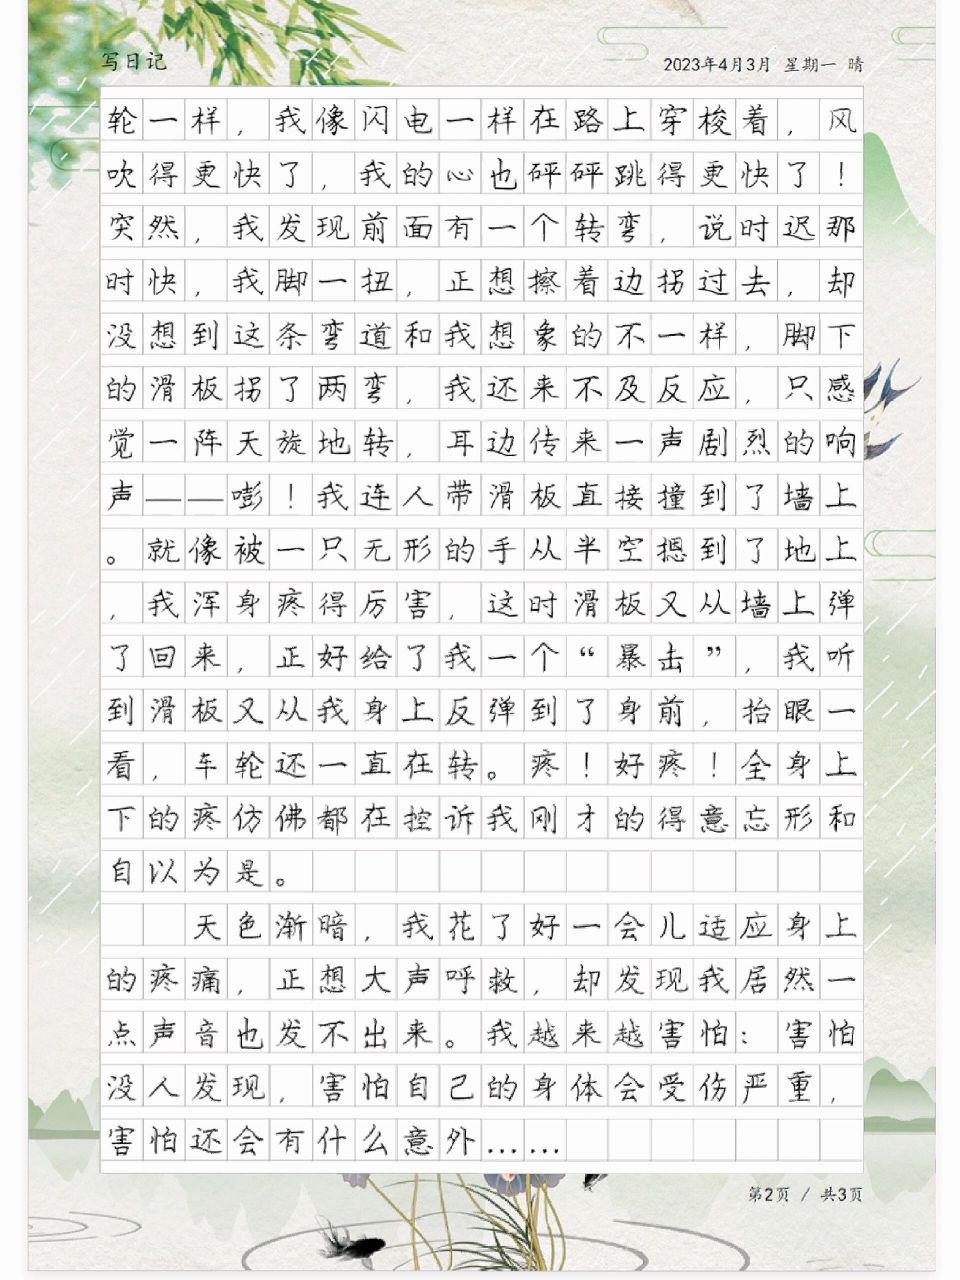 写日记
2023年4月3月 星期一 晴
轮一样，我像闪电一样在路上穿梭着，风
吹得更快了，我的心也砰砰跳得更快了！
突然，我发现前面有一个转弯，说时迟那
时快，我脚一扭，正想擦着边拐过去，却
没想到这条弯道和我想象的不一样，脚下
的滑板拐了两弯，我还来不及反应，只感
觉一阵天旋地转，耳边传来一声剧烈的响
声——嘭！我连人带滑板直接撞到了墙上
。就像被一只无形的手从半空摁到了地上
，我浑身疼得厉害，这时滑板又从墙上弹
了回来，正好给了我一个“暴击”，我听
到滑板又从我身上反弹到了身前，抬眼一
看，车轮还一直在转。疼！好疼！全身上
下的疼仿佛都在控诉我刚才的得意忘形和
自以为是。
天色渐暗，我花了好一会儿适应身上
的疼痛，正想大声呼救，却发现我居然一
点声音也发不出来。我越来越害怕：害怕
没人发现，害怕自己的身体会受伤严重，
害怕还会有什么意外……
第2页 / 共3页